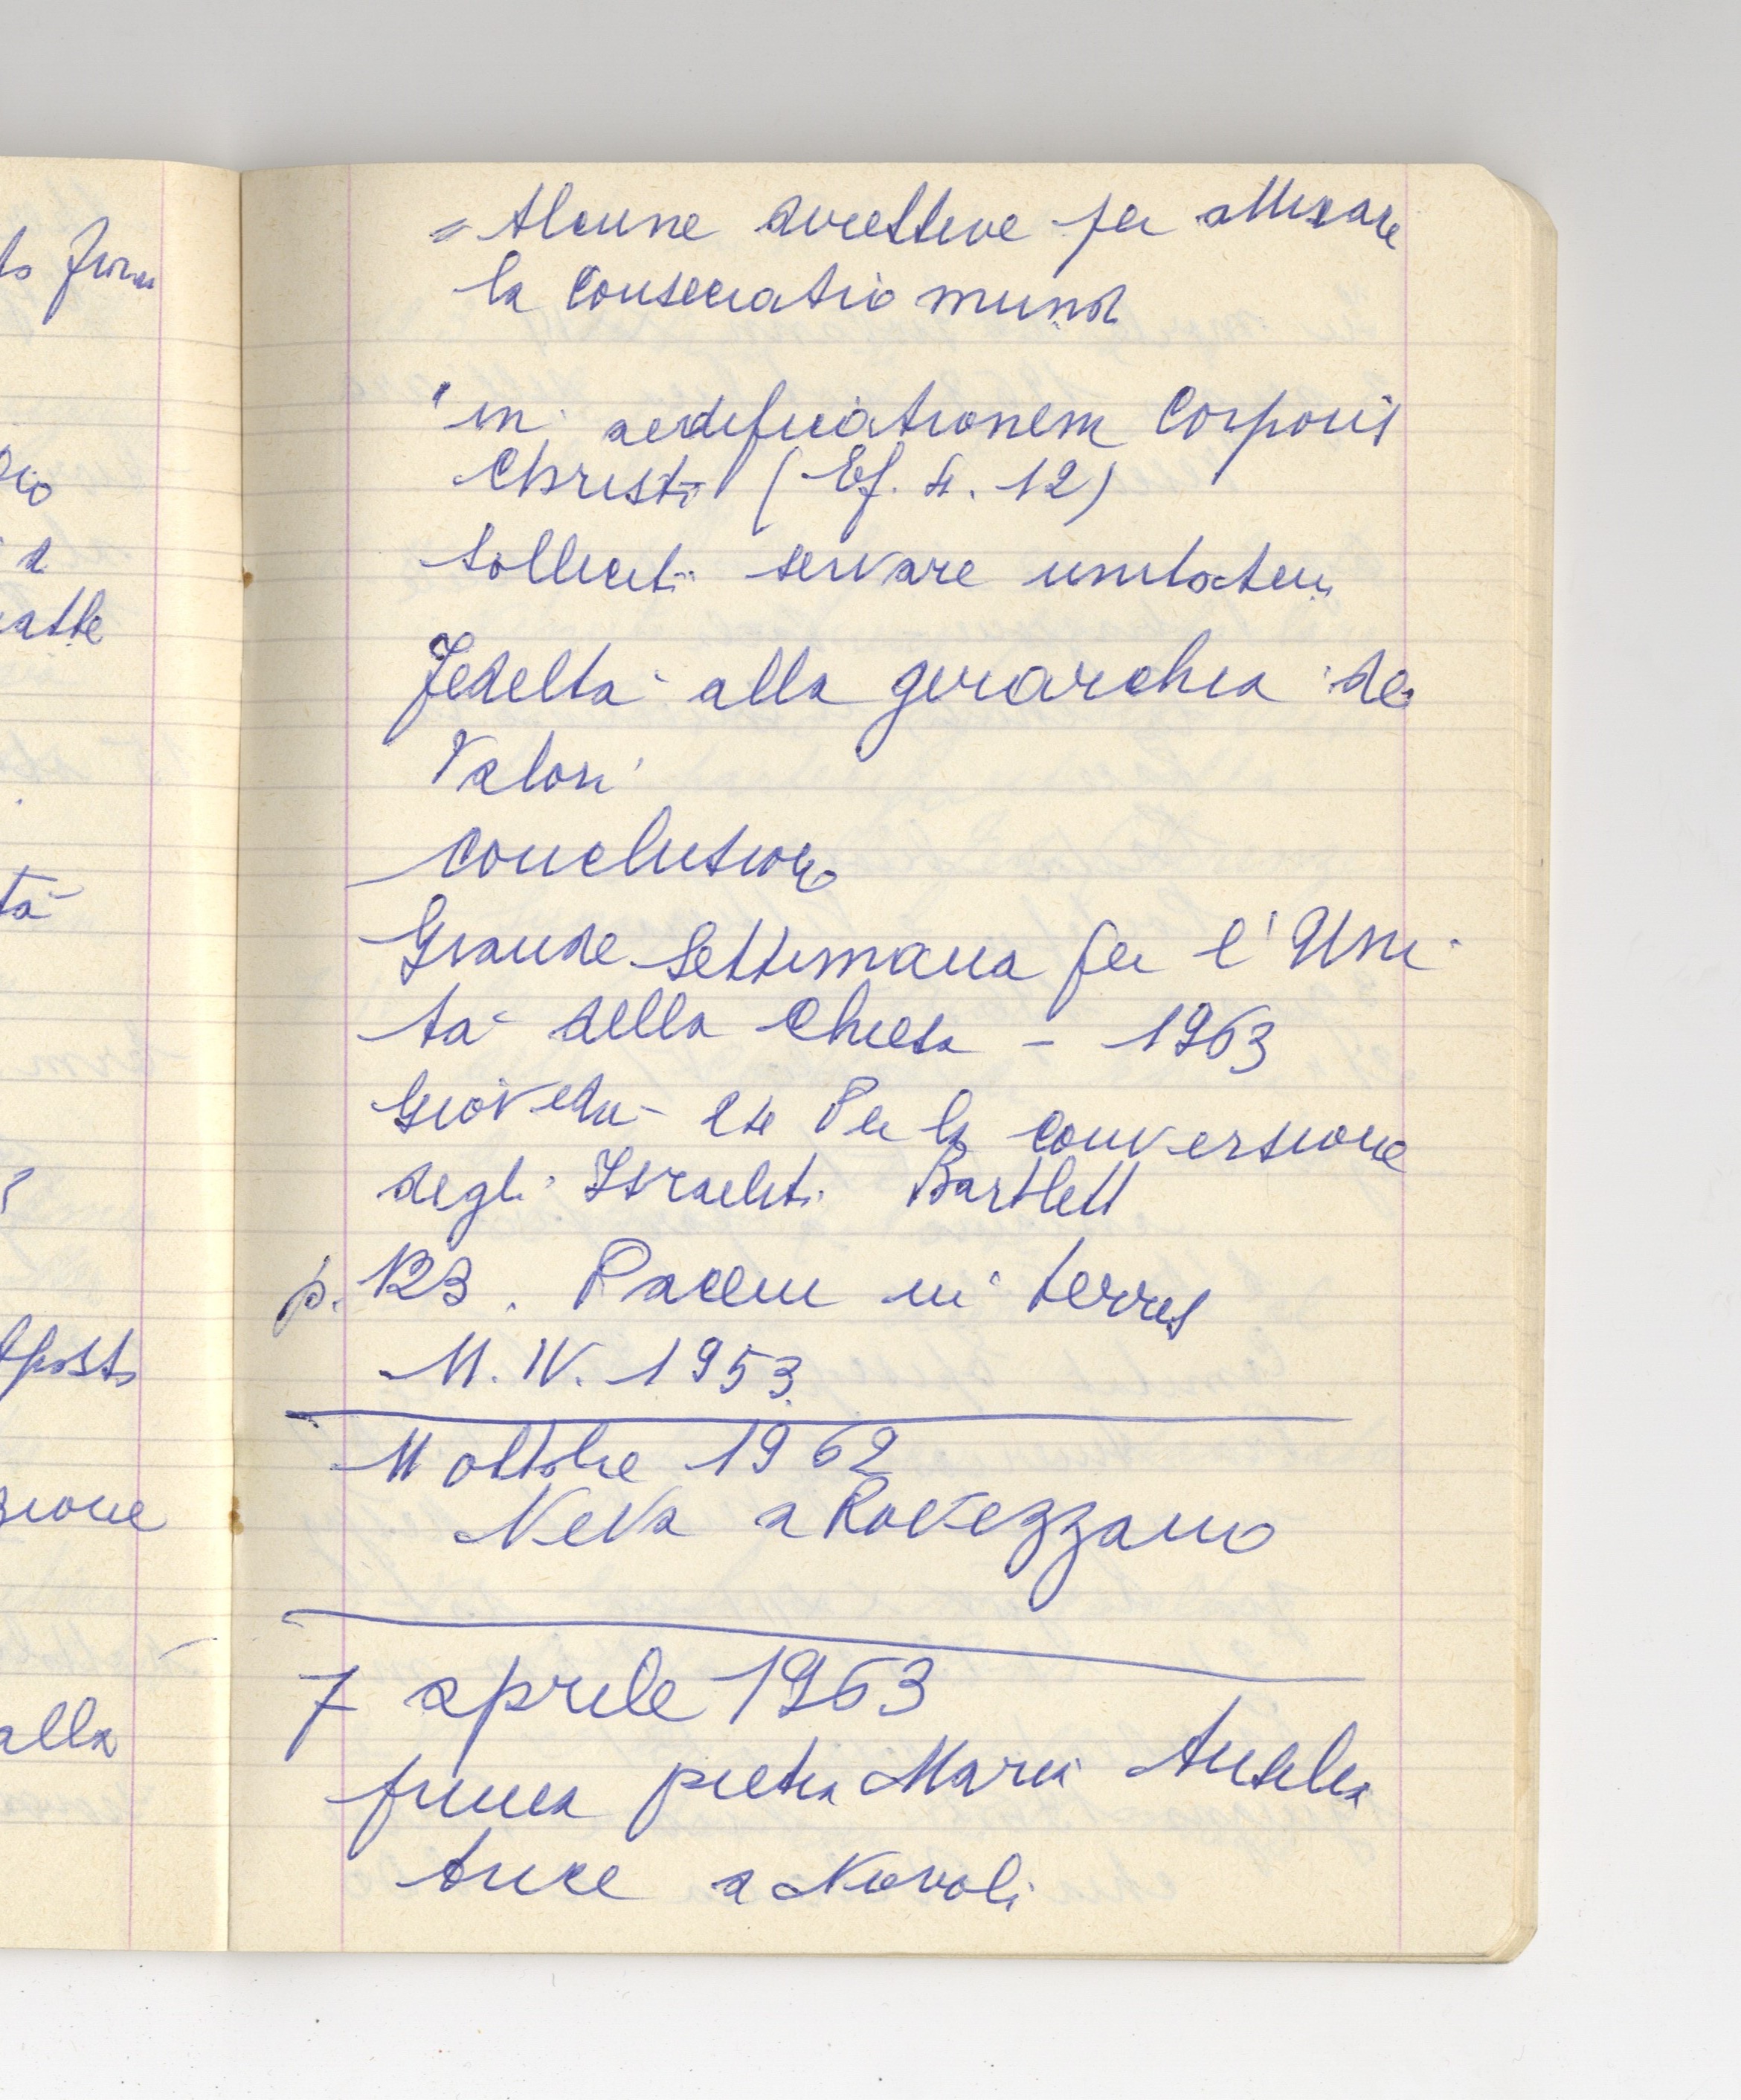 to
ta
Apost
zione
alla
= Alcune direttive per attuare
la consecratio mundi
"in aedificationem Corporis
Christi (Ef. 4. 12)
solliciti servare unitatem
Fedeltà alla gerarchia dei
Valori
Conclusione
Grande Settimana per l'Uni
tà della Chiesa - 1963
Giovedì 24 Per la conversione
degli Israeliti Bartlett
p. 123. Pacem in terris
11. IV. 1953
11 ottobre 1962
Neva a Rovezzano
7 aprile 1963
prima pietra Maria Ausilia
trice a Novoli